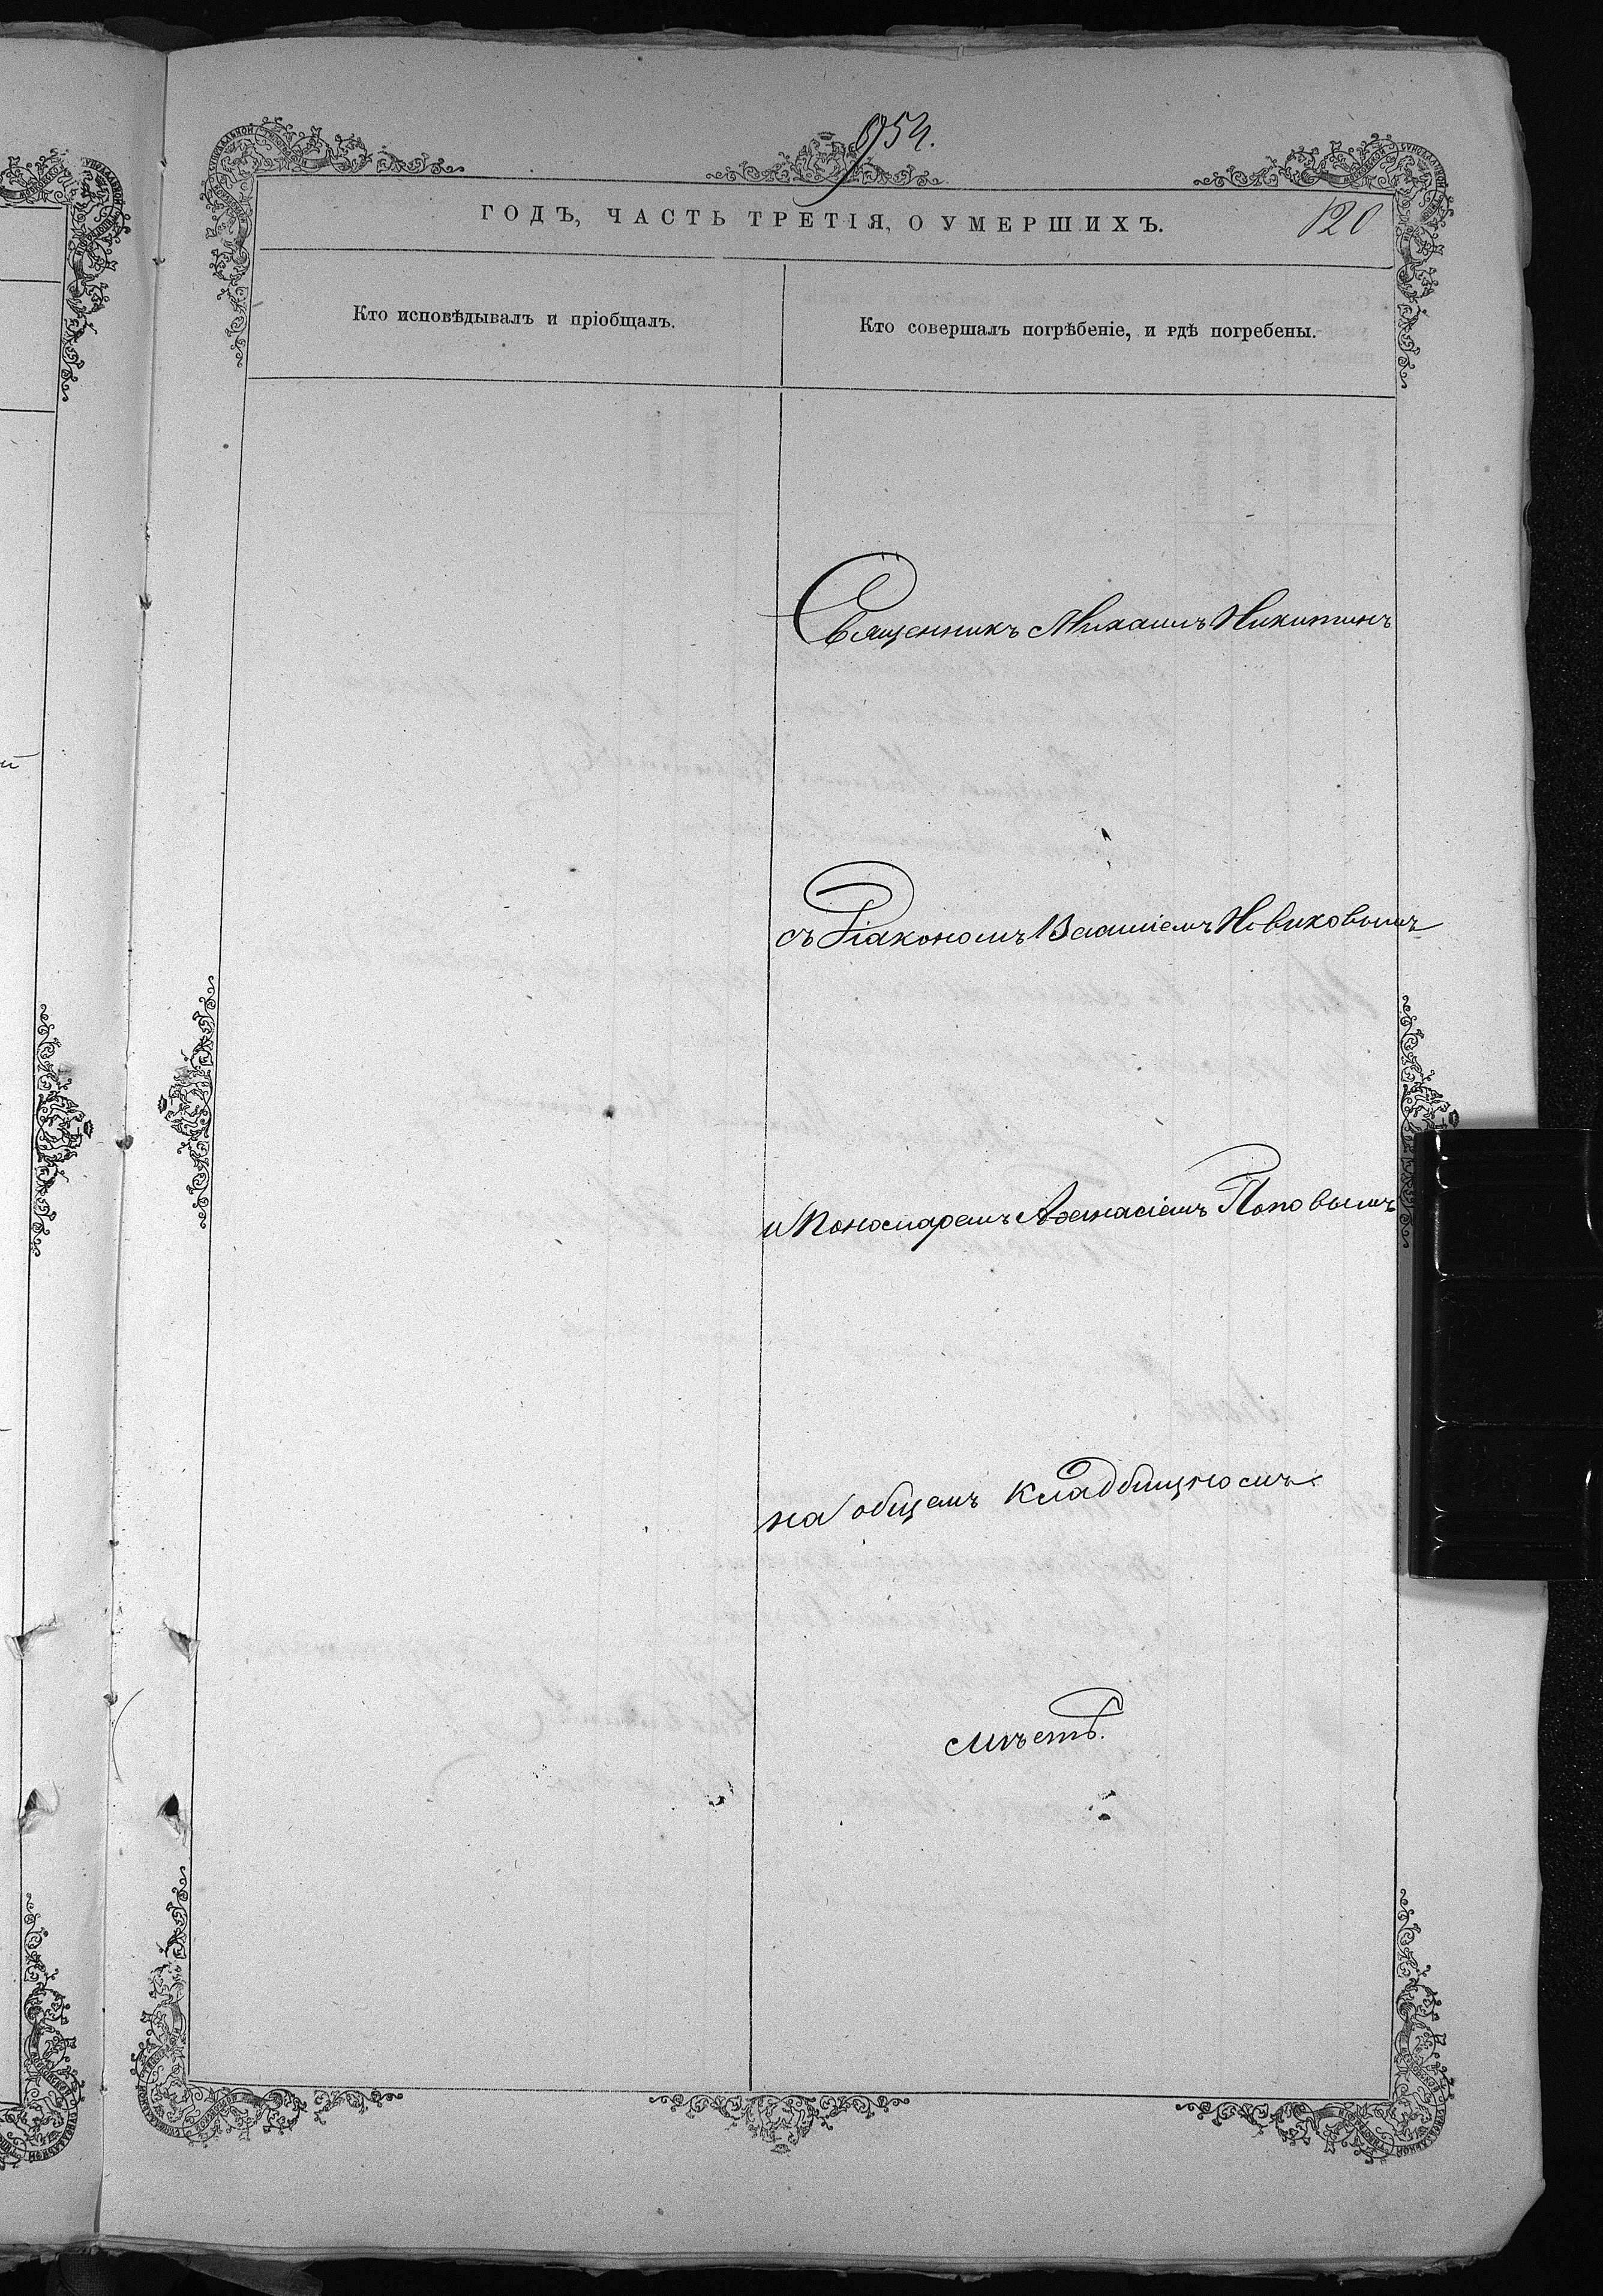 954.
ГОДЪ, ЧАСТЬ ТРЕТІЯ, О УМЕРШИХЪ.
120
Кто исповѣдывалъ и пріобщалъ.
Кто совершалъ погрѣбеніе, и гдѣ погребены.
Священникъ Михаилъ Никитинъ
съ Діакономъ Василіемъ Новиковымъ
и Пономаремъ Аѳанасіемъ Поповымъ
на общемъ кладбищномъ
мѣстѣ.